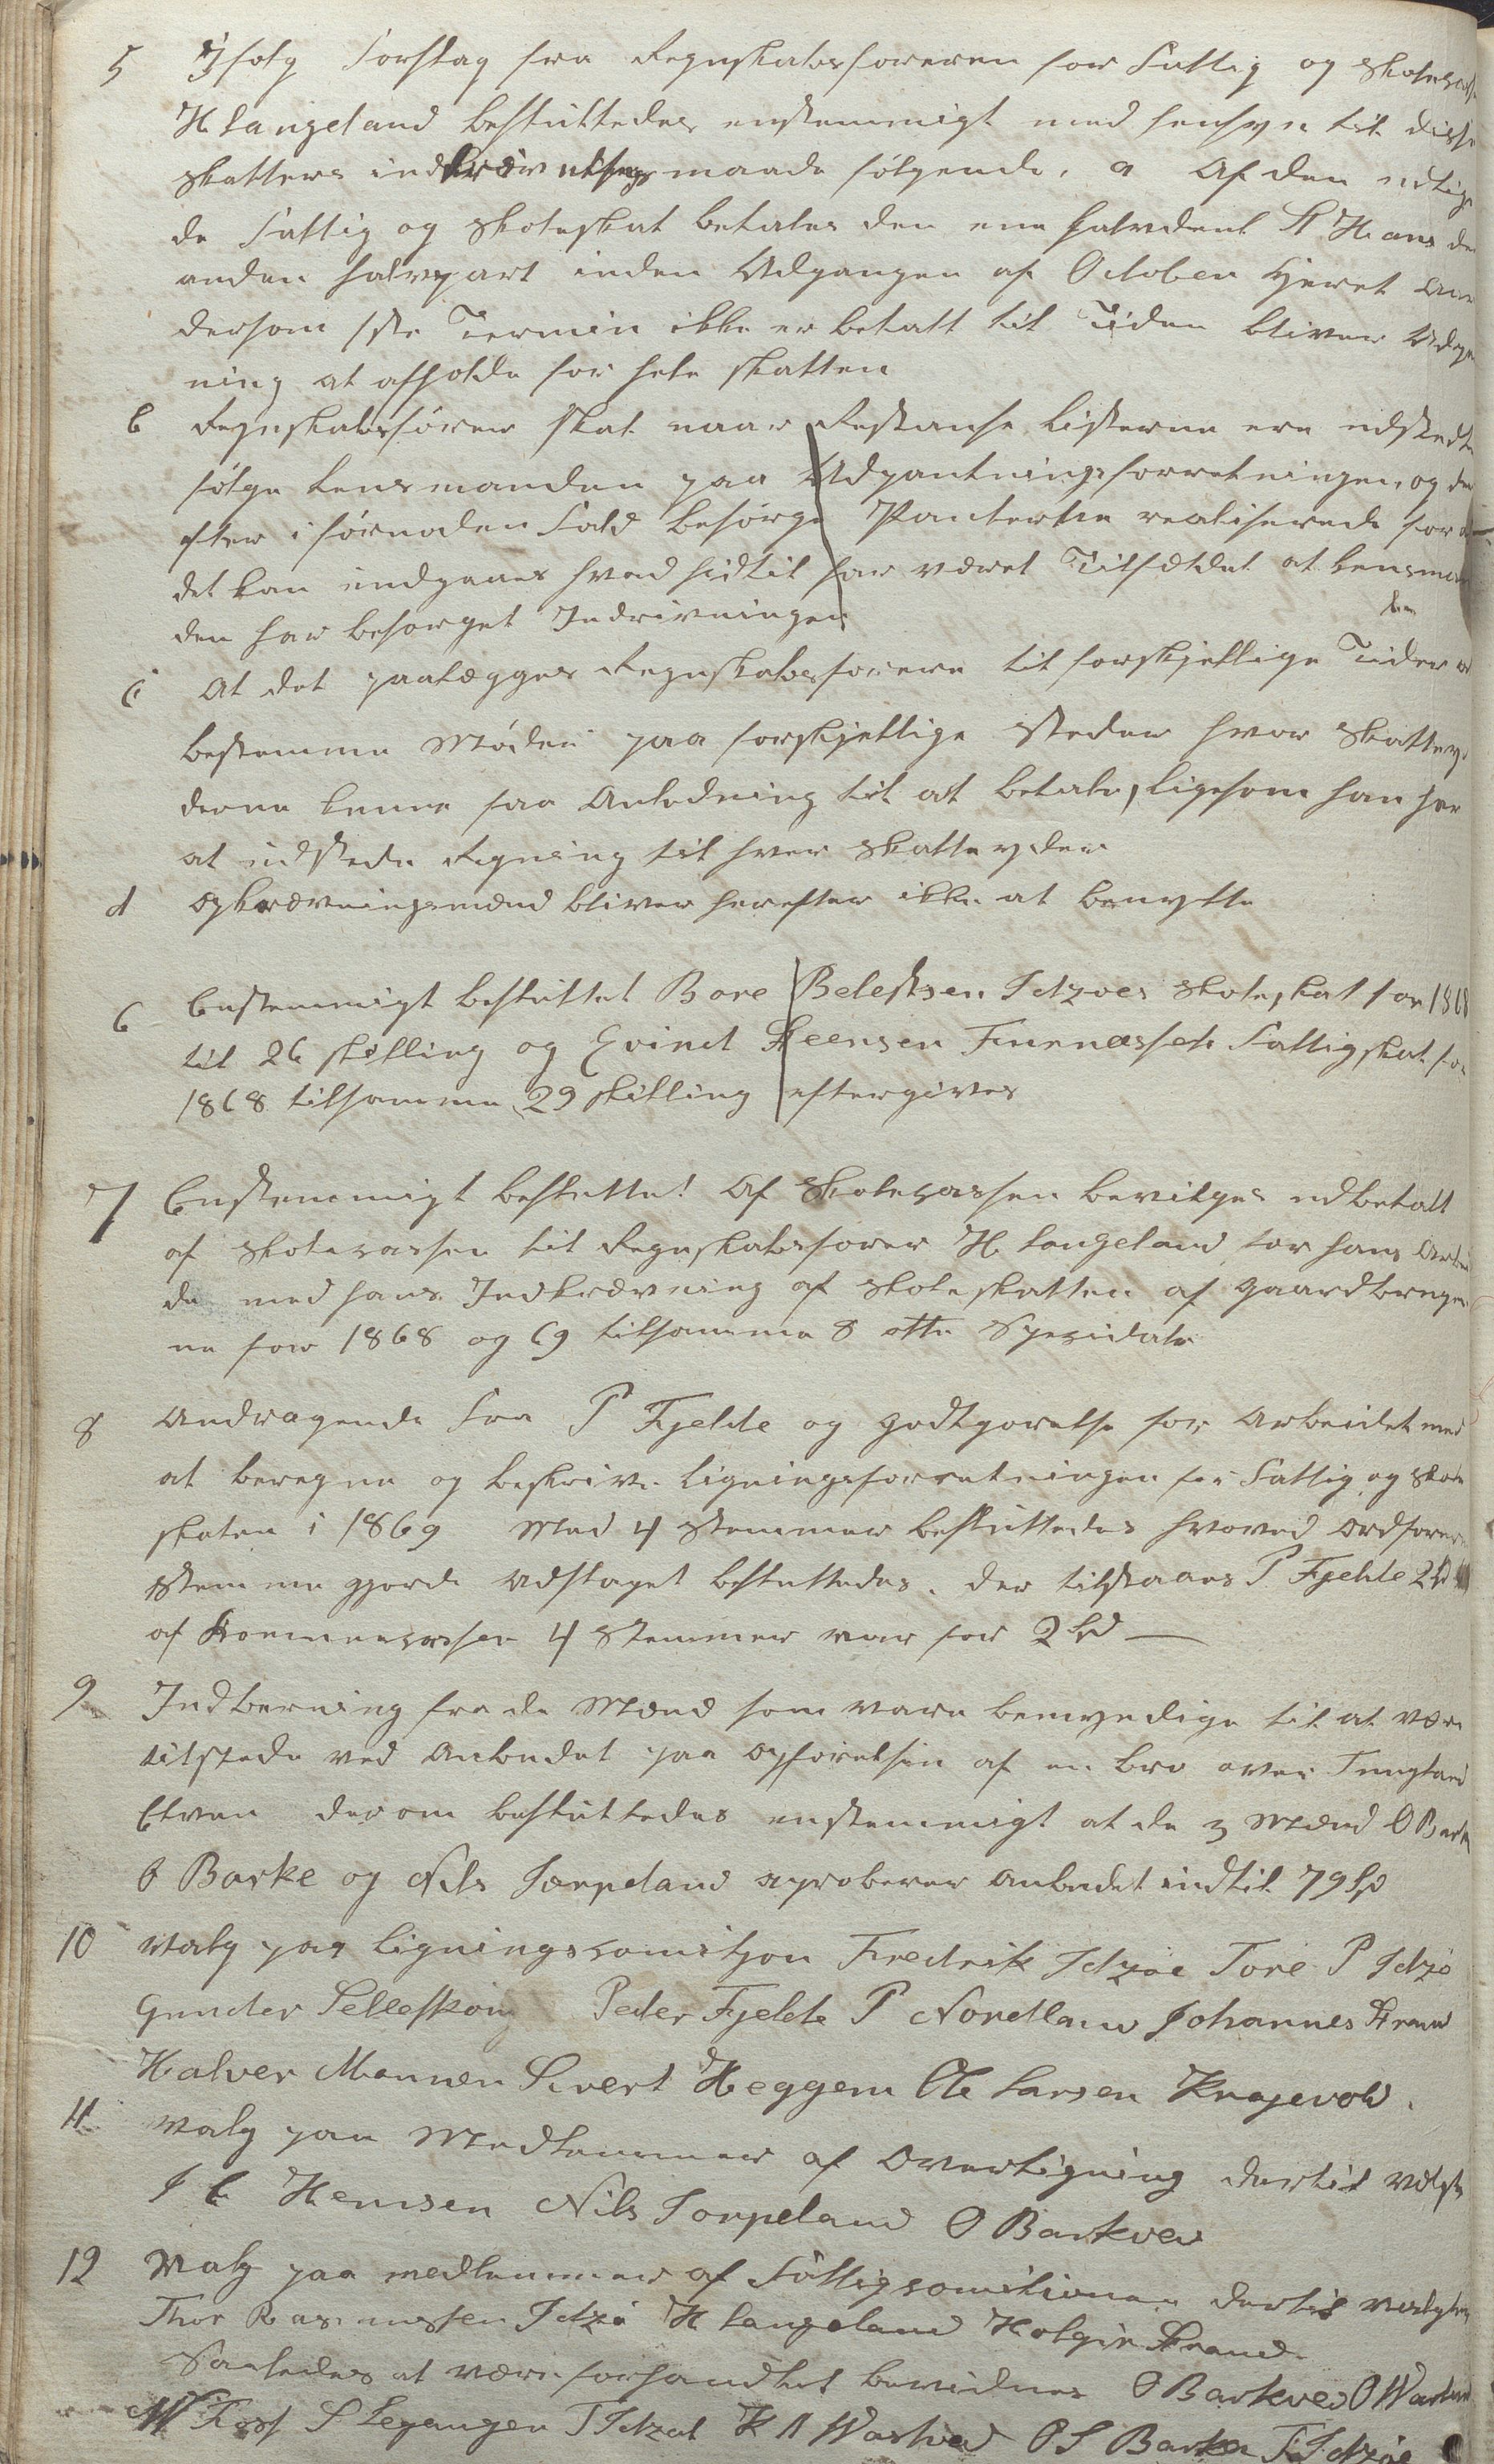 5 Ifølg Forslag fra Regnskabsføreren for Fattig og Skole
H Langeland besluttedes enstemmigt med Hensyn til disse
Skatters indkrævelses maade følgende, a Af den udlig
de Fattig og Skoleskat betales den ene halvdeel St Hans de
anden halvpart inden Udgangen af October hveret
dersom 1ste Termin ikke er betalt til Tiden bliver
ning at afholde for hele skatten
b Regnskabsfører skal naar Restanse Listerne ere udstedte
følge Lensmanden paa Udpantningsforretningen, og der
efter i fornøden Fald besørge Panterne realiserede for
det kan undgaaes hvad hidtil har været Tilfældet at Lensman
den har besørget Inddrivningen
c At det paalægges Regnskabsførere til forskjellige Tider
bestemme Møder paa forskjellige Steder hvor Skattey
derne kunne faa Anledning til at betale, ligesom han har
at udstede Regning til hver Skatteyder
d Opkrævningsmænd bliver herefter ikke at benytte
6 Enstemmigt besluttet Bore Belestsen Idzoes Skoleskat for 1868
til 26 skilling og Evind Steensen Furenæsset Fattigskat for
1868 tilsamme 29 skilling eftergives
7 Enstemmigt besluttet! Af Skolecassen bevilges udbetalt
af Skolecassen til Regnskabsfører H Langeland for hans
de med hans Indkrævning af Skoleskatten af gaardbruger
ne for 1868 og 69 tilsamme 8 otte Spesidaler
8 Andragende fra P Fjelde og godtgjørelse for Arbeidet med
at beregne og beskrive Ligningsforretningen for Fattig og Skole
skaten i 1869 Med 4 Stemmer besluttedes hvorved Ordførere
Stemme gjorde Udslaget besluttedes. der tilstaaes P Fjelde
af Kommunecassen 4 Stemmer var for 2 Spd
9 Indberning fra de Mænd som vare bemyndige til at være
tilstede ved Anbudet paa Opførelsen af en bro over Tungland
Elven derom besluttedes enstemmigt at de 3 Mænd O Bark
O Barke og Nils Torpeland aproberer Anbudet indtil 79 Spd
10 Valg paa Ligningscomisjon Fredrik Idzøe Tore P Idzø
Gunder Selleskoug Peder Fjelde P Nordland Johannes Strand
Halver Mannen Sivert Heggem Ole Larsen Krogevold.
11 Valg paa Medlemmer af Overligning dertil valgte
J C Hemsen Nils Torpeland O Barkved
12 Valg paa medlemmer af Fattigcomisionen dertil valgte
Thor Rasmussen Idzø H Langeland Holgir Strand
Saaledes at være forhandlet bevidner O Barkved
S Legangen T Idzøl O S Barke